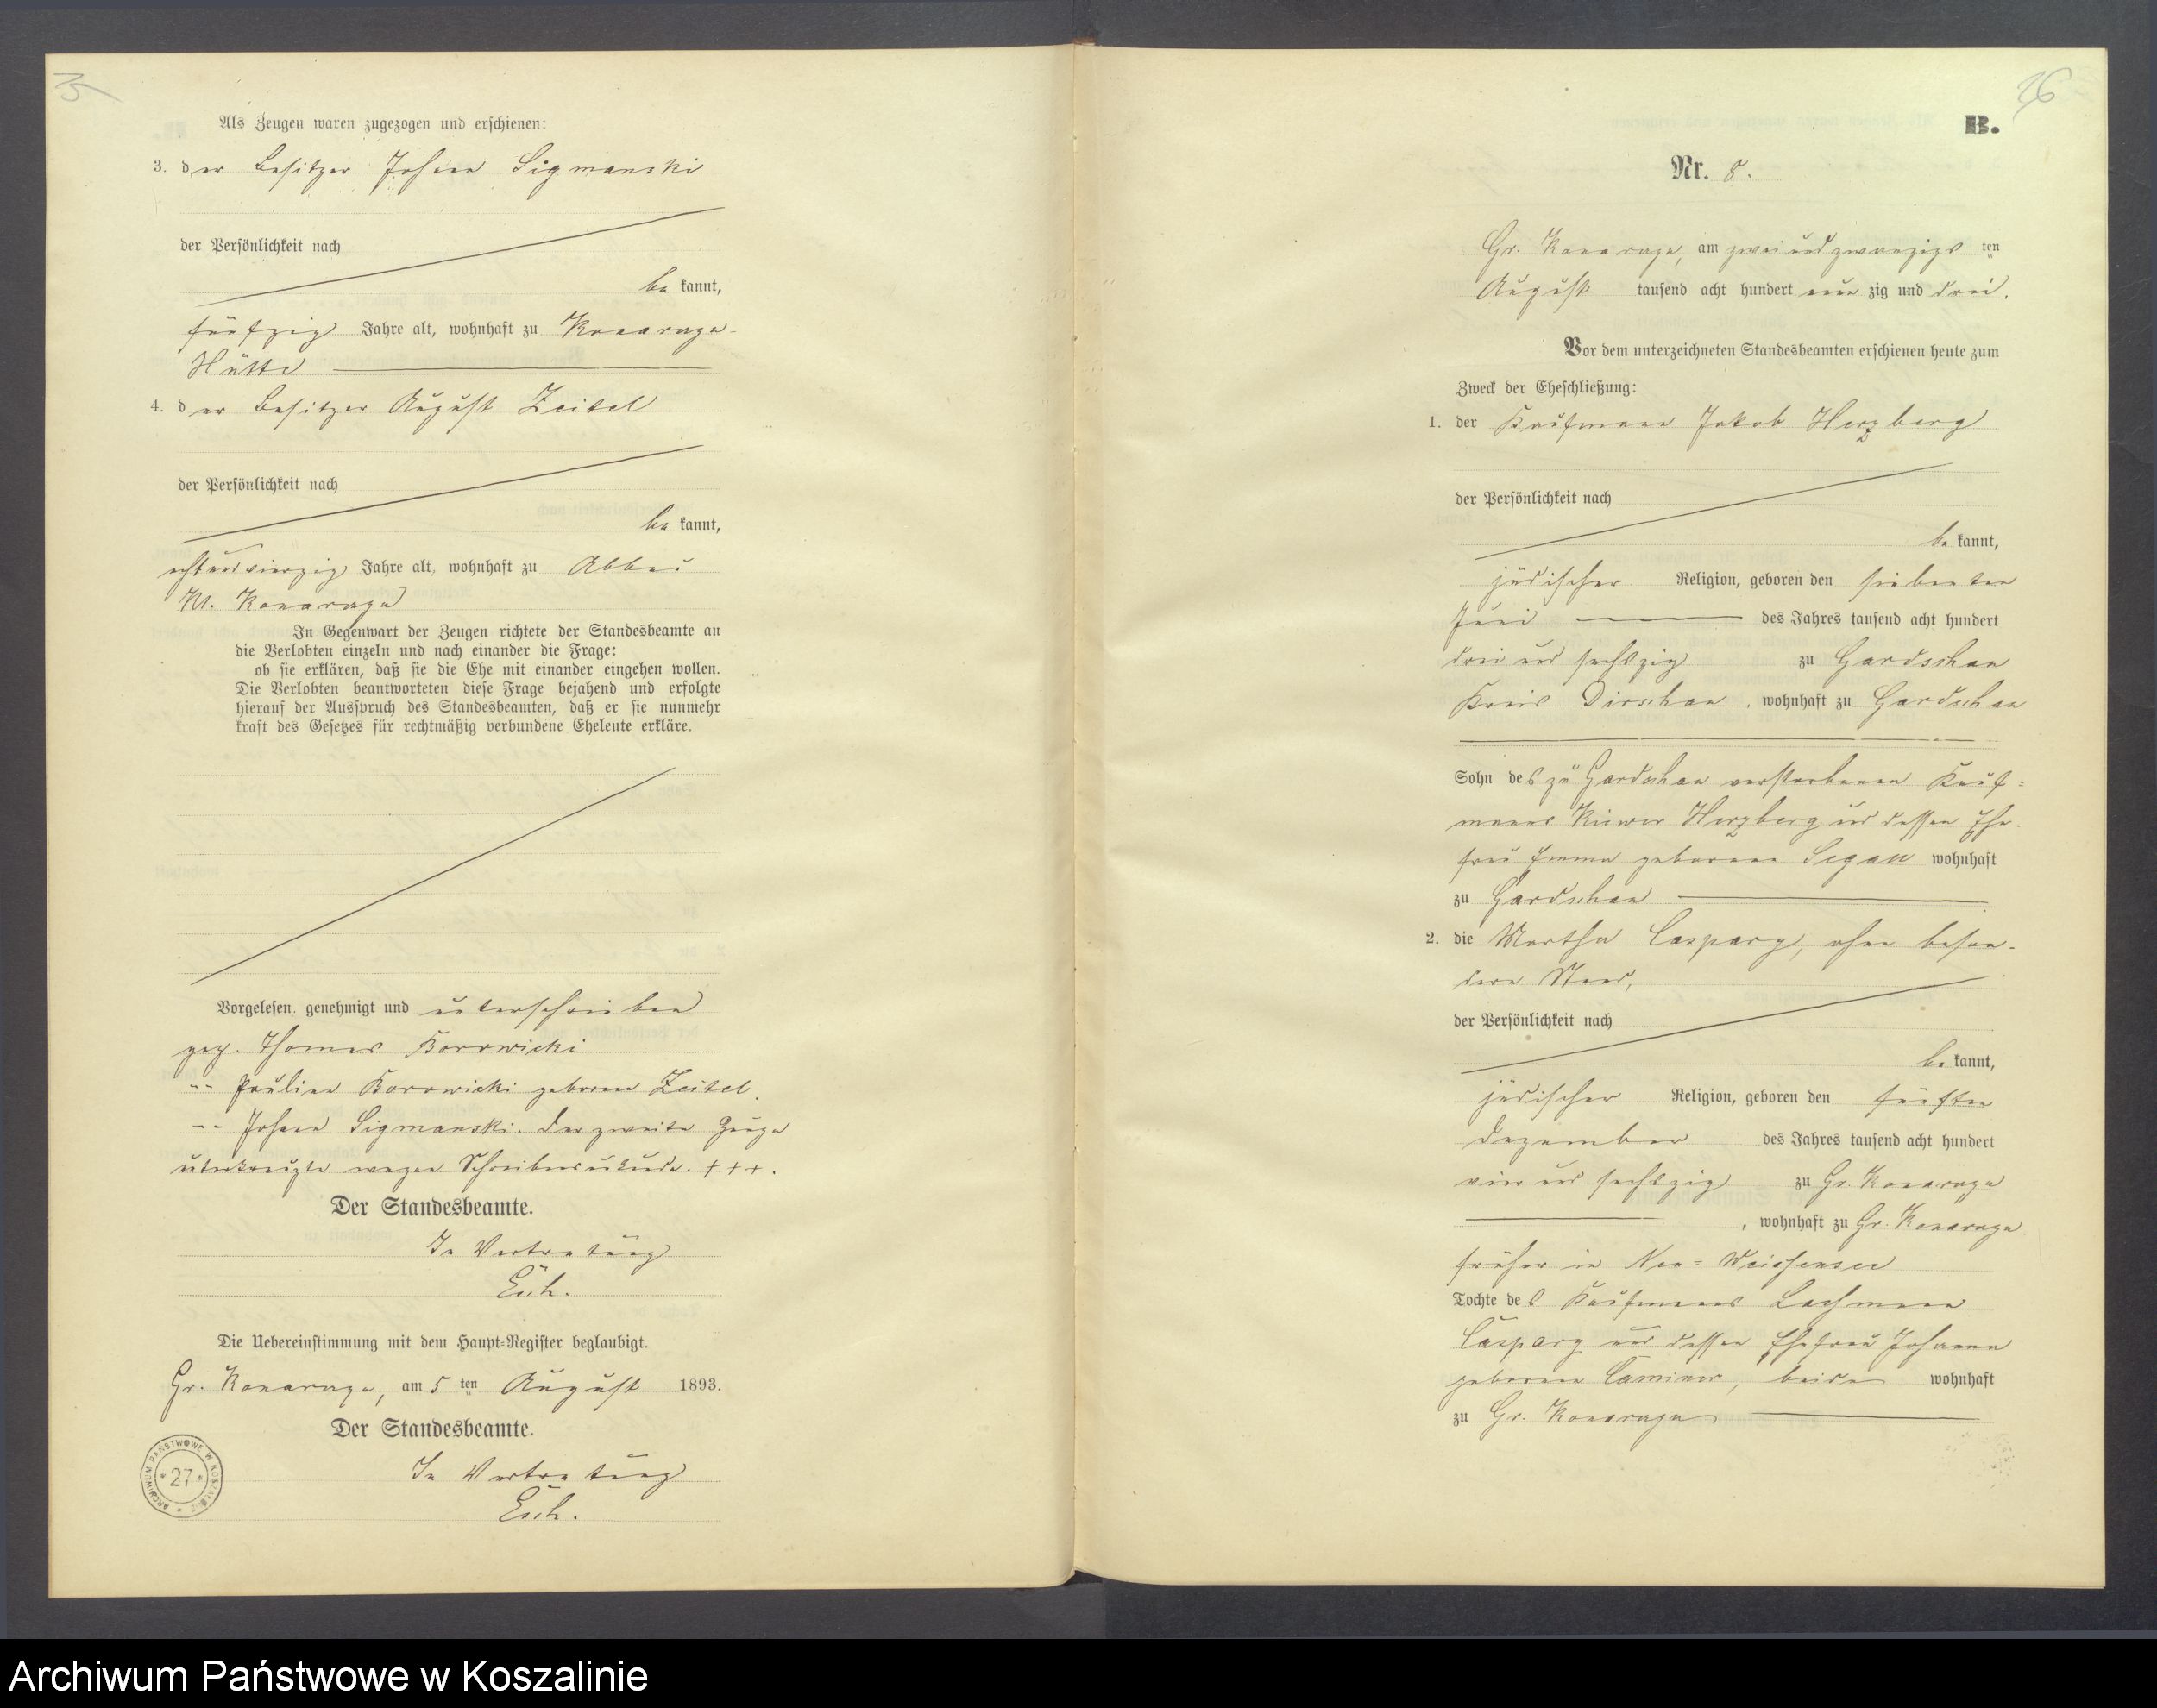 Als Zeugen waren zugezogen und erschienen:
3. der Besitzer Johann Sigmanski
der Persönlichkeit nach
bekannt,
fünfzig Jahre alt, wohnhaft zu Konarczyn-
Hütte
4. der Besitzer August Zeitel
der Persönlichkeit nach
bekannt,
achtundvierzig Jahre alt, wohnhaft zu Abbau
Kl. Konarczyn
In Gegenwart der Zeugen richtete der Standesbeamte an
die Verlobten einzeln und nach einander die Frage:
ob sie erklären, daß sie die Ehe mit einander eingehen wollen.
Die Verlobten beantworteten diese Frage bejahend und erfolgte
hierauf der Ausspruch des Standesbeamten, daß er sie nunmehr
kraft des Gesetzes für rechtmäßig verbundene Eheleute erkläre.
Vorgelesen, genehmigt und unterschrieben
gez. Thomas Borowicki
-- Pauline Borowicki geborene Zeitel.
-- Johann Sigmanski. Der zweite Zeuge
unterkreuzte wegen Schreibensunkunde. +++.
Der Standesbeamte.
In Vertretung
Die Uebereinstimmung mit dem Haupt-Register beglaubigt.
Gr. Konarczyn, am 5 ten August 1893.
Der Standesbeamte.
In Vertretung
ARCHIWUM PAŃSTWOWE W KOSZALINIE * 27 *
26
B.
Nr. 8.
Gr. Konarczyn, am zweiundzwanzigsten
August tausend acht hundert neunzig und drei.
Vor dem unterzeichneten Standesbeamten erschienen heute zum
Zweck der Eheschließung:
1. der Kaufmann Jakob Herzberg
der Persönlichkeit nach
bekannt,
jüdischer Religion, geboren den siebenten
Juni des Jahres tausend acht hundert
drei und sechszig zu Gardschau
Kreis Dirschau, wohnhaft zu Gardschau
Sohn des zu Gardschau verstorbenen Kauf=
manns Herzberg und dessen Ehe-
frau Emma geborene wohnhaft
zu Gardschau
2. die Martha Caspary, ohne beson-
dern Stand,
der Persönlichkeit nach
bekannt,
jüdischer Religion, geboren den fünften
Dezember des Jahres tausend acht hundert
vier und sechszig zu Gr. Konarczyn
, wohnhaft zu Gr. Konarczyn
früher in Neu=Weissensee
Tochter des Kaufmanns Lachmann
Caspary und dessen Ehefrau Johanna
geborene Caminer, beide wohnhaft
zu Gr. Konarczyn
Archiwum Państwowe w Koszalinie